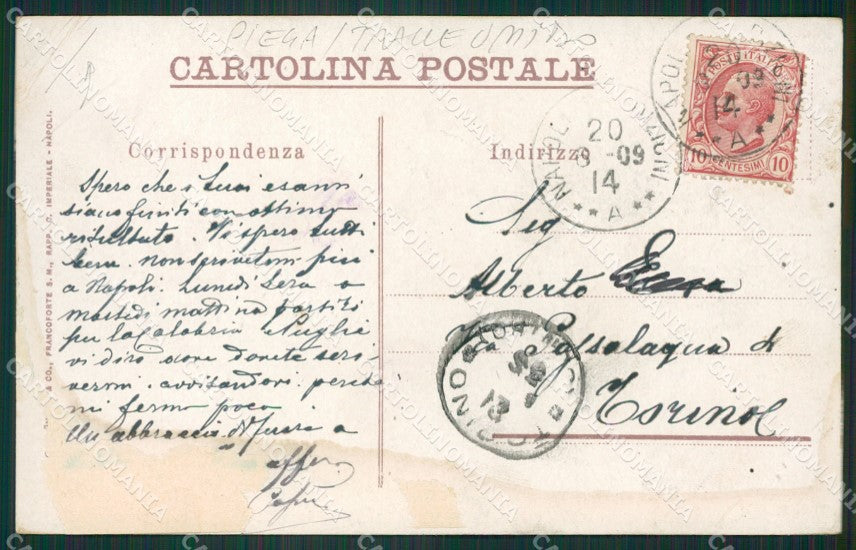 PIEGA / TRACCE UMIDO
CARTOLINA POSTALE
Corrispondenza
Spero che i tuoi esami
siano finiti con ottimo
risultato. Vi spero tutti
bene. non scrivetemi più
a Napoli. Lunedì sera o
martedì mattina partirò
per la Calabria e Puglie
vi dirò dove dovete scri-
vermi avvisandovi perchè
mi fermo poco
Un abbraccio di cuore a
aff
Indirizzo
Sig
Alberto
Via Passalaqua 4
Torino
POSTE ITALIANE
10 CENTESIMI 10
NAPOLI
20
-09
14
A
TORINO
13
& CO., FRANCOFORTE S. M., RAPP. C. IMPERIALE - NAPOLI.
CARTOLINOMANIA